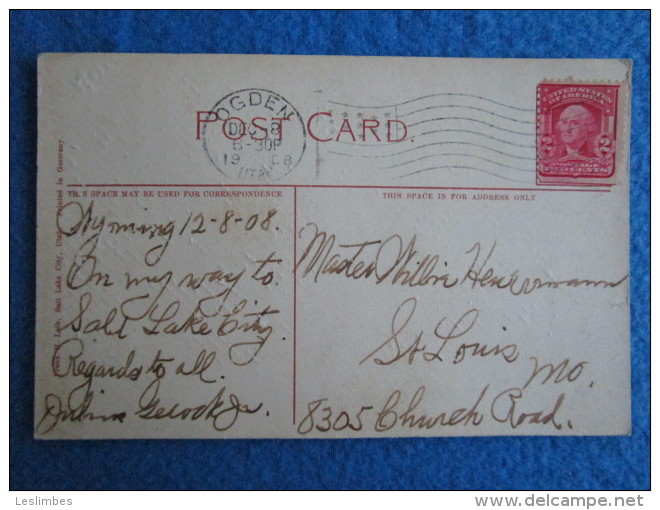 POST CARD.
OGDEN
DEC 8
6-30P
1908
UTAH
UNITED STATES
OF AMERICA
2 2
POSTAGE
TWO CENTS
THIS SPACE MAY BE USED FOR CORRESPONDENCE
THIS SPACE IS FOR ADDRESS ONLY
Wyming 12-8-08.
On my way to
Salt Lake City.
Regards to all.
Jr.
Master Willie
St Louis
Mo.
8305 Church Road.
Salt Lake City, Utah. Printed in Germany.
Leslimbes
delcampe.net